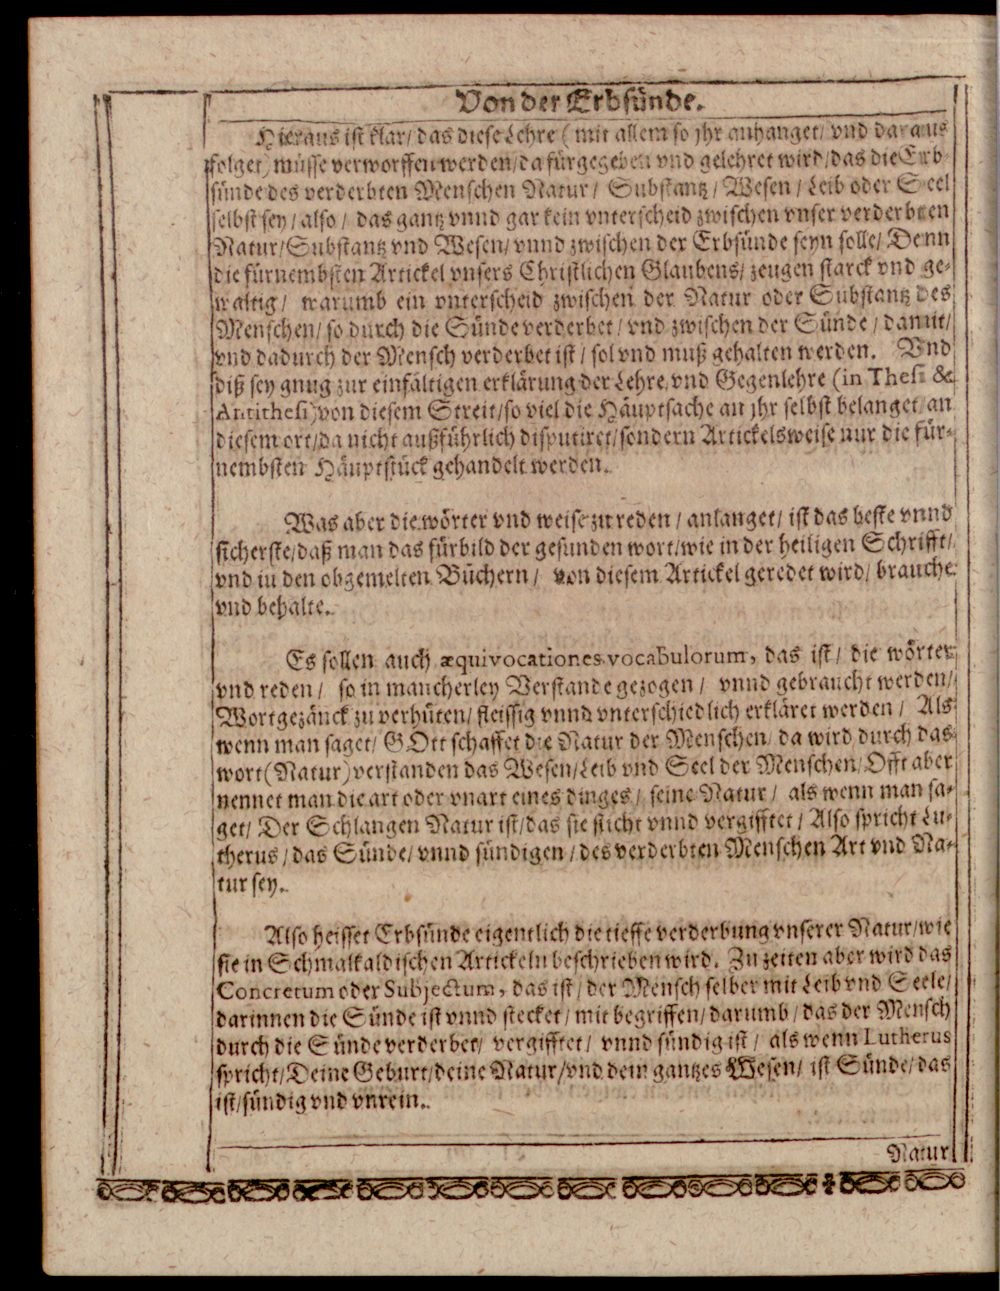 Von der Erbsünde.
Hieraus ist klar/ das diese Lehre (mit allem so jhr anhanget/ vnd daraus
folget) müsse verworffen werden/ da fürgegeben vnd gelehret wird/ das die Erb-
sünde des verderbten Menschen Natur/ Substantz/ Wesen/ Leib oder Seel
selbst sey/ also/ das gantz vnnd gar kein vnterscheid zwischen vnser verderbten
Natur/ Substantz vnd Wesen/ vnnd zwischen der Erbsünde seyn solle/ Denn
die fürnembsten Artickel vnsers Christlichen Glaubens/ zeugen starck vnd ge-
waltig/ warumb ein vnterscheid zwischen der Natur oder Substantz des
Menschen/ so durch die Sünde verderbet/ vnd zwischen der Sünde/ damit/
vnd dadurch der Mensch verderbet ist/ sol vnd muß gehalten werden. Vnd
diß sey gnug zur einfältigen erklärung der Lehre vnd Gegenlehre (in Thesi &
Antithesi) von diesem Streit/ so viel die Häuptsache an jhr selbst belanget/ an
diesem ort/ da nicht außführlich disputiret/ sondern Artickelsweise nur die für-
nembsten Häuptstück gehandelt werden.
Was aber die wörter vnd weise zu reden/ anlanget/ ist das beste vnnd
sicherste/ daß man das fürbild der gesunden wort/ wie in der heiligen Schrifft/
vnd in den obgemelten Büchern/ von diesem Artickel geredet wird/ brauche
vnd behalte.
Es sollen auch æquivocationes vocabulorum, das ist/ die wörter
vnd reden/ so in mancherley Verstande gezogen/ vnnd gebraucht werden/
Wortgezänck zu verhüten/ fleissig vnnd vnterschiedlich erkläret werden/ Als
wenn man saget/ GOtt schaffet die Natur der Menschen/ da wird durch das
wort (Natur) verstanden das Wesen/ Leib vnd Seel der Menschen/ Offt aber
nennet man die art oder vnart eines dinges/ seine Natur/ als wenn man sa-
get/ Der Schlangen Natur ist/ das sie sticht vnnd vergifftet/ Also spricht Lu-
therus/ das Sünde/ vnnd sündigen/ des verderbten Menschen Art vnd Na-
tur sey.
Also heisset Erbsünde eigentlich die tieffe verderbung vnserer Natur/ wie
sie in Schmalkaldischen Artickeln beschrieben wird. Zu zeiten aber wird das
Concretum oder Subjectum, das ist/ der Mensch selber mit Leib vnd Seele/
darinnen die Sünde ist vnnd stecket/ mit begriffen/ darumb/ das der Mensch
durch die Sünde verderbet/ vergifftet/ vnnd sündig ist/ als wenn Lutherus
spricht/ Deine Geburt/ deine Natur/ vnd dein gantzes Wesen/ ist Sünde/ das
ist/ sündig vnd vnrein.
Natur